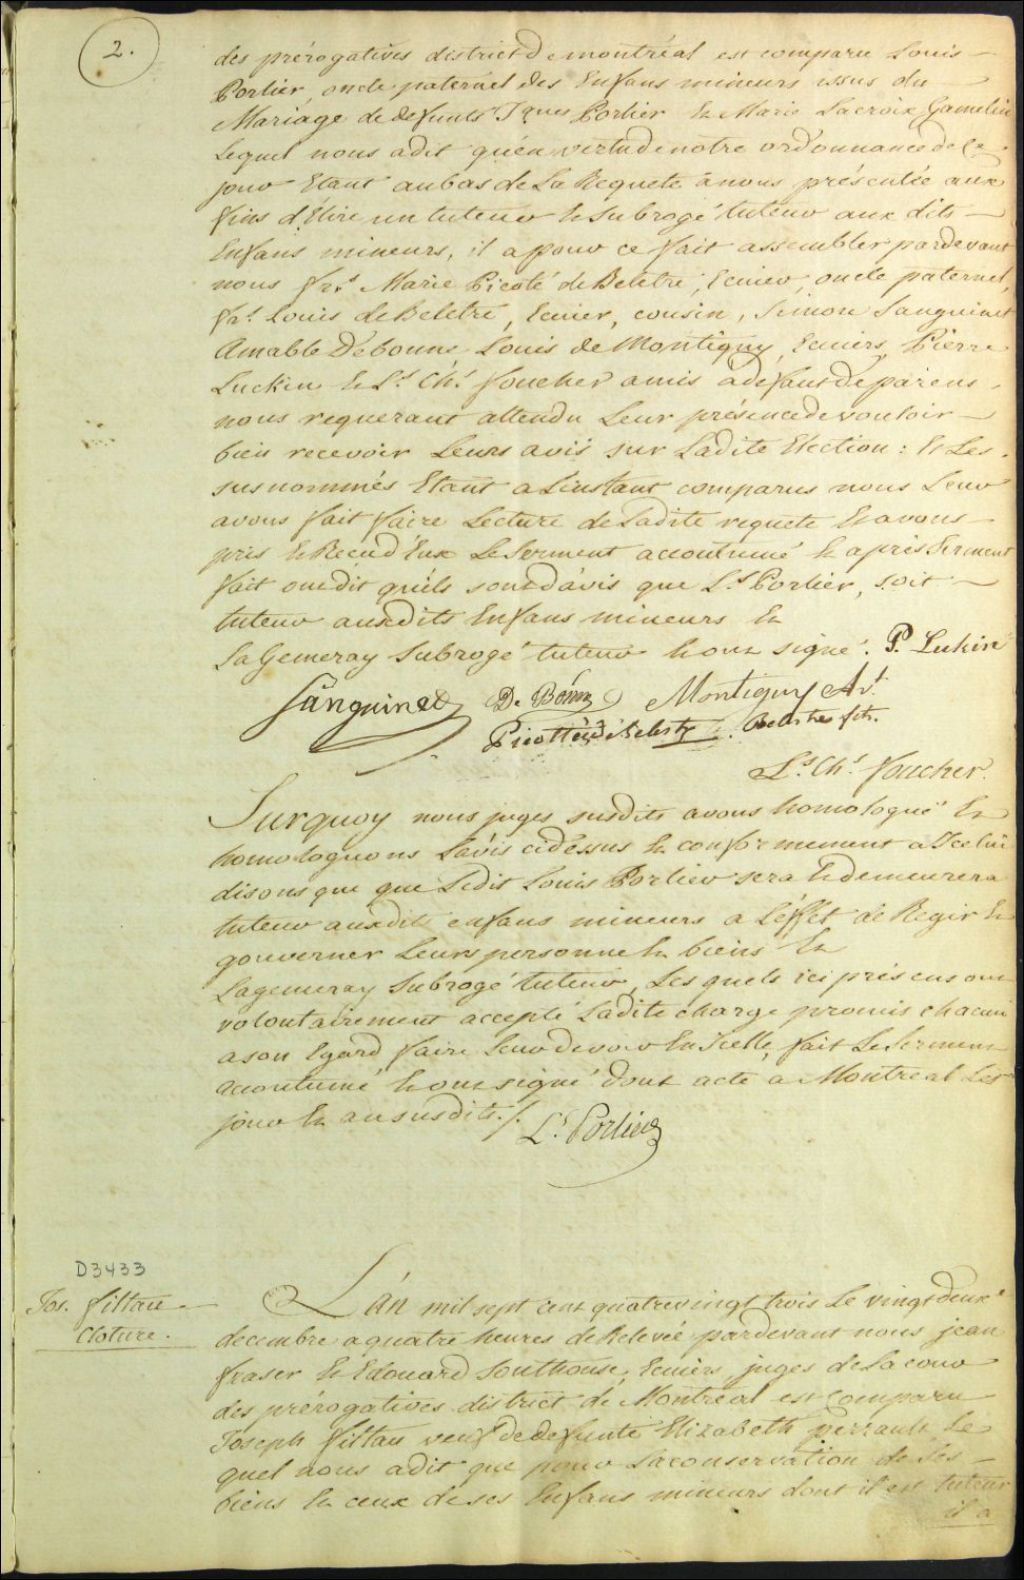 2.
des prérogatives district de montréal est comparu Louis
Porlier, oncle paternel des Enfans mineurs issus du
Mariage de defunts Jques Porlier & Marie Lacroix Gamelin
Lequel nous a dit qu'en vertu de notre ordonnance de Ce
jour Etant au bas de La Requete a nous présentée aux
fins d'Elire un tuteur & subrogé tuteur aux dits
Enfans mineurs, il a pour ce fait assembler pardevant
nous frs Marie Picoté de Beletre, Ecuier, oncle paternel,
frs Louis de Beletre, Ecuier, cousin, Simon Sanguinet
Amable Debonne, Louis de Montigny, Ecuiers, Pierre
Luckin & Ls Chs foucher amis a defaut de parens
nous requerant attendu Leur présence de vouloir
bien recevoir Leurs avis sur Ladite Election : & Les
susnommés Etant a L'instant comparus nous Leur
avons fait faire Lecture de Ladite requete & avons
pris & Recu d'Eux Le Serment accoutumé & après Serment
fait ont dit qu'ils sont d'avis que Ls Porlier, soit
tuteur auxdits Enfans mineurs &
LaGemeray Subrogé tuteur & ont signé. P. Lukin
Sanguinet De Bonne Montigny Avt
Picotté de Belestre. Belestre fils.
Ls Chs foucher.
Surquoy nous juges susdits avons homologué &
homologuons L'avis cidessus & conformement a Icelui
disons que que Ledit Louis Porlier sera & demeurera
tuteur auxdits enfans mineurs a L'effet de Regir &
gouverner Leurs personne & biens &
Lagemeray Subrogé tuteur, Lesquels ici présens ont
volontairement accepté Ladite charge promis chacun
a son Egard faire Leur devoir En Icelle, fait Le Serment
accoutumé & ont signé dont acte a Montreal Les
jour & an susdits./.
Ls Porlier
D3433
Jos. filtau
Cloture.
L'an mil sept cent quatrevingt trois Le vingt deux
decembre a quatre heures de Relevée pardevant nous jean
fraser & Edouard Southouse, Ecuiers, juges de La cour
des prérogatives district de Montreal est Comparu
Joseph filtau veuf de defunte Elizabeth perrault Le
quel nous a dit que pour La conservation de Ses
biens & ceux de ses Enfans mineurs dont il est tuteur
il a